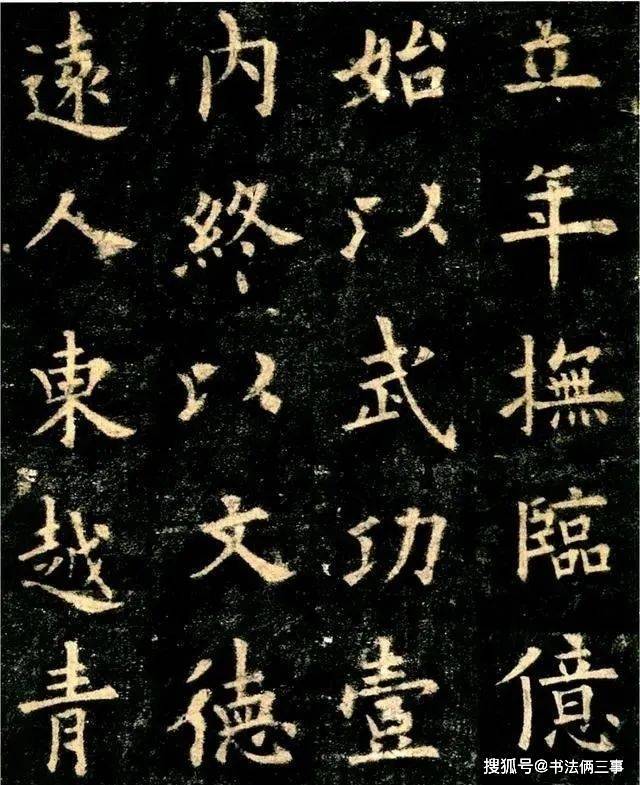 立年撫臨億
始以武功壹
内終以文德
遠人東越青
搜狐号@书法俩三事